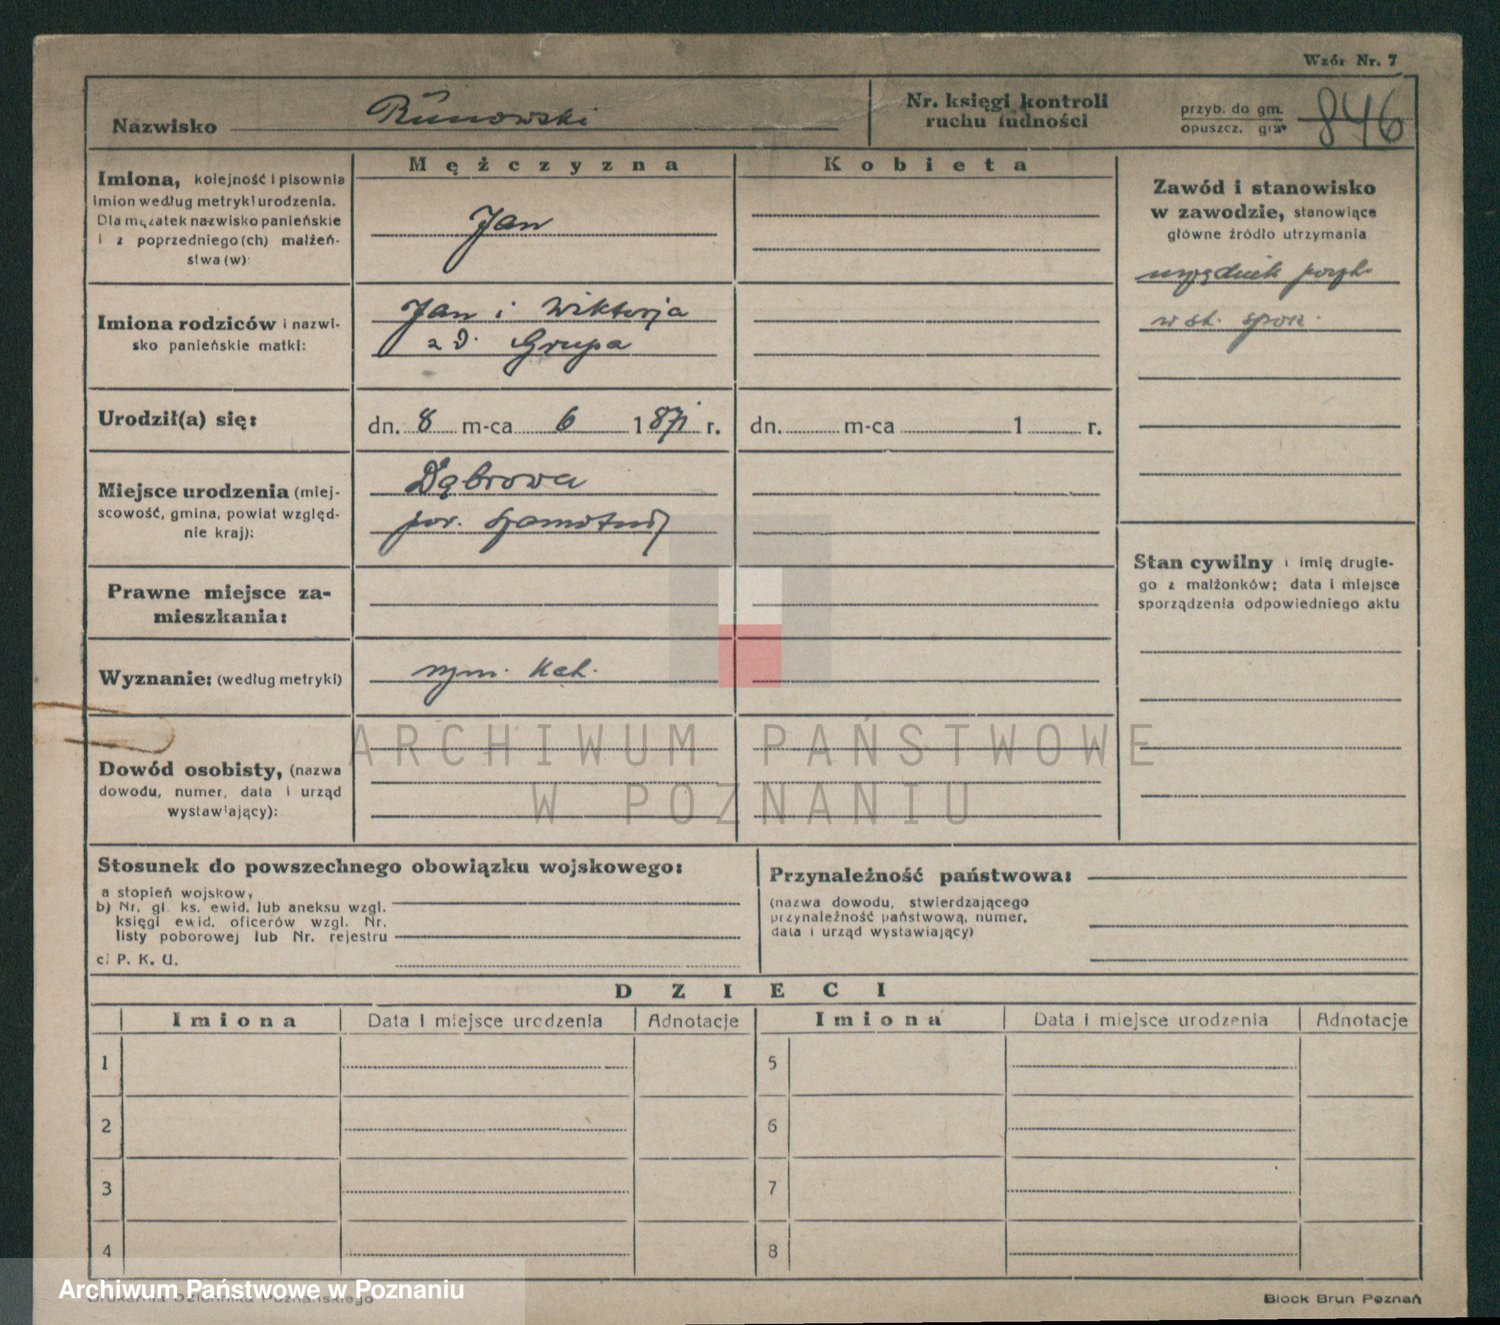 Wzór Nr. 7
Nazwisko Runowski
Nr. księgi kontroli
ruchu ludności
przyb. do gm.
opuszcz. gm. 846
Mężczyzna
Kobieta
Imiona, kolejność i pisownia
imion według metryki urodzenia.
Dla mężatek nazwisko panieńskie
i z poprzedniego(ch) małżeń-
stwa(w):
Jan
Zawód i stanowisko
w zawodzie, stanowiące
główne źródło utrzymania
urzędnik
w st. spocz.
Imiona rodziców i nazwi-
sko panieńskie matki:
Jan i Wiktorja
z d. Grupa
Urodził(a) się:
dn. 8 m-ca 6 1871 r.
dn. m-ca 1 r.
Miejsce urodzenia (miej-
scowość, gmina, powiat względ-
nie kraj):
Dąbrowa
pow. Szamotuły
Stan cywilny i imię drugie-
go z małżonków; data i miejsce
sporządzenia odpowiedniego aktu
Prawne miejsce za-
mieszkania:
Wyznanie: (według metryki)
rzym. kat.
Dowód osobisty, (nazwa
dowodu, numer, data i urząd
wystawiający):
ARCHIWUM PAŃSTWOWE
W POZNANIU
Stosunek do powszechnego obowiązku wojskowego:
a stopień wojskow,
b) Nr. gl. ks. ewid. lub aneksu wzgl.
księgi ewid. oficerów wzgl. Nr.
listy poborowej lub Nr. rejestru
c) P. K. U.
Przynależność państwowa:
(nazwa dowodu, stwierdzającego
przynależność państwową, numer,
data i urząd wystawiający)
DZIECI
Imiona Data i miejsce urodzenia Adnotacje Imiona Data i miejsce urodzenia Adnotacje
1 5
2 6
3 7
4 8
Archiwum Państwowe w Poznaniu
Drukarnia Dziennika Poznańskiego
Block Brun Poznań